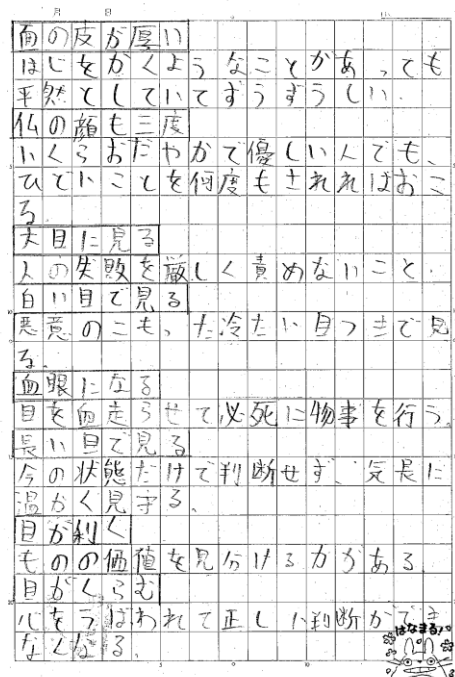 月 日
面の皮が厚い
はじをかくようなことがあっても
平然としていてずうずうしい.
仏の顔も三度
いくらおだやかで優しい人でも、
ひどいことを何度もされればおこ
る.
大目に見る
人の失敗を厳しく責めないこと.
白い目で見る
悪意のこもった冷たい目つきで見
る.
血眼になる
目を血走らせて必死に物事を行う.
長い目で見る
今の状態だけで判断せず、気長に
温かく見守る.
目が利く
ものの価値を見分ける力がある.
目がくらむ
心をうばわれて正しい判断ができ
なくなる.
はなまる!